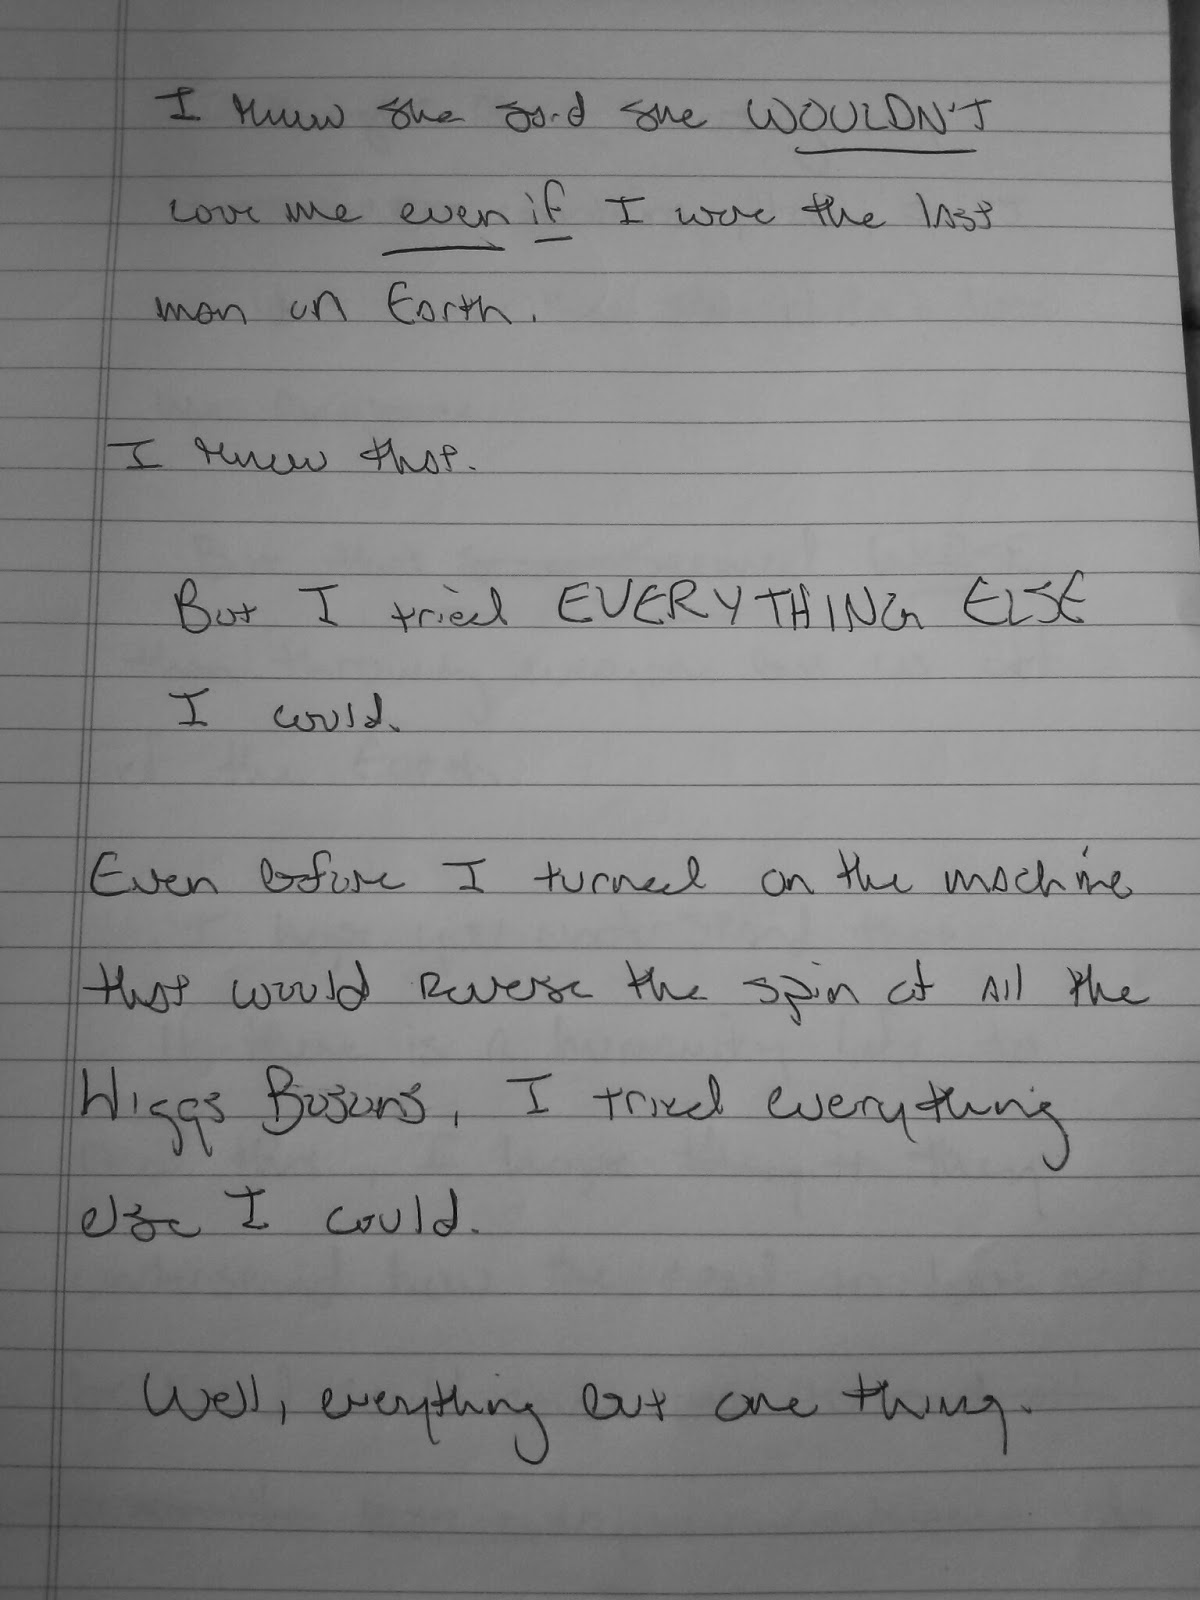 I knew she said she WOULDN'T
love me even if I were the last
man on Earth.
I knew that.
But I tried EVERYTHING ELSE
I could.
Even before I turned on the machine
that would reverse the spin of all the
Higgs Bosons, I tried everything
else I could.
Well, everything but one thing.